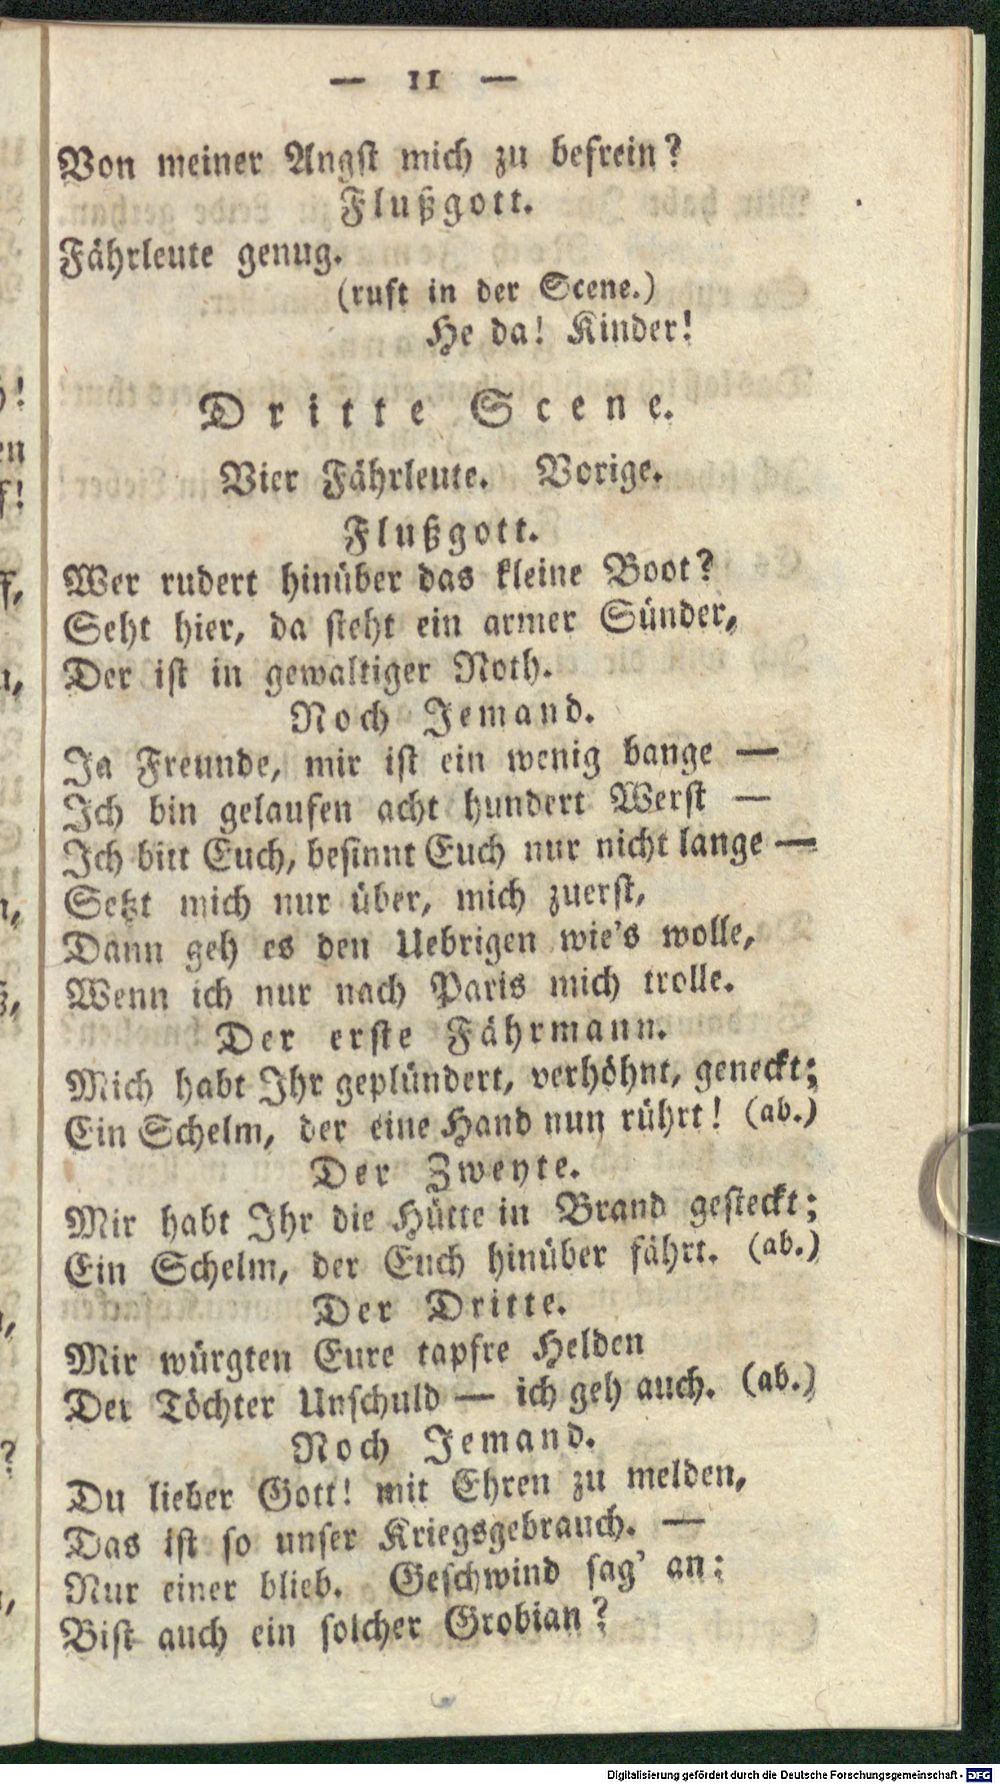 — 11 —
Von meiner Angst mich zu befrein?
Flußgott.
Fährleute genug.
(ruft in der Scene.)
He da! Kinder!
Dritte Scene.
Vier Fährleute. Vorige.
Flußgott.
Wer rudert hinüber das kleine Boot?
Seht hier, da steht ein armer Sünder,
Der ist in gewaltiger Noth.
Noch Jemand.
Ja Freunde, mir ist ein wenig bange —
Ich bin gelaufen acht hundert Werst —
Ich bitt Euch, besinnt Euch nur nicht lange —
Setzt mich nur über, mich zuerst,
Dann geh es den Uebrigen wie's wolle,
Wenn ich nur nach Paris mich trolle.
Der erste Fährmann.
Mich habt Ihr geplündert, verhöhnt, geneckt;
Ein Schelm, der eine Hand nun rührt! (ab.)
Der Zweyte.
Mir habt Ihr die Hütte in Brand gesteckt;
Ein Schelm, der Euch hinüber fährt. (ab.)
Der Dritte.
Mir würgten Eure tapfre Helden
Der Töchter Unschuld — ich geh auch. (ab.)
Noch Jemand.
Du lieber Gott! mit Ehren zu melden,
Das ist so unser Kriegsgebrauch. —
Nur einer blieb. Geschwind sag' an:
Bist auch ein solcher Grobian?
Digitalisierung gefördert durch die Deutsche Forschungsgemeinschaft - DFG